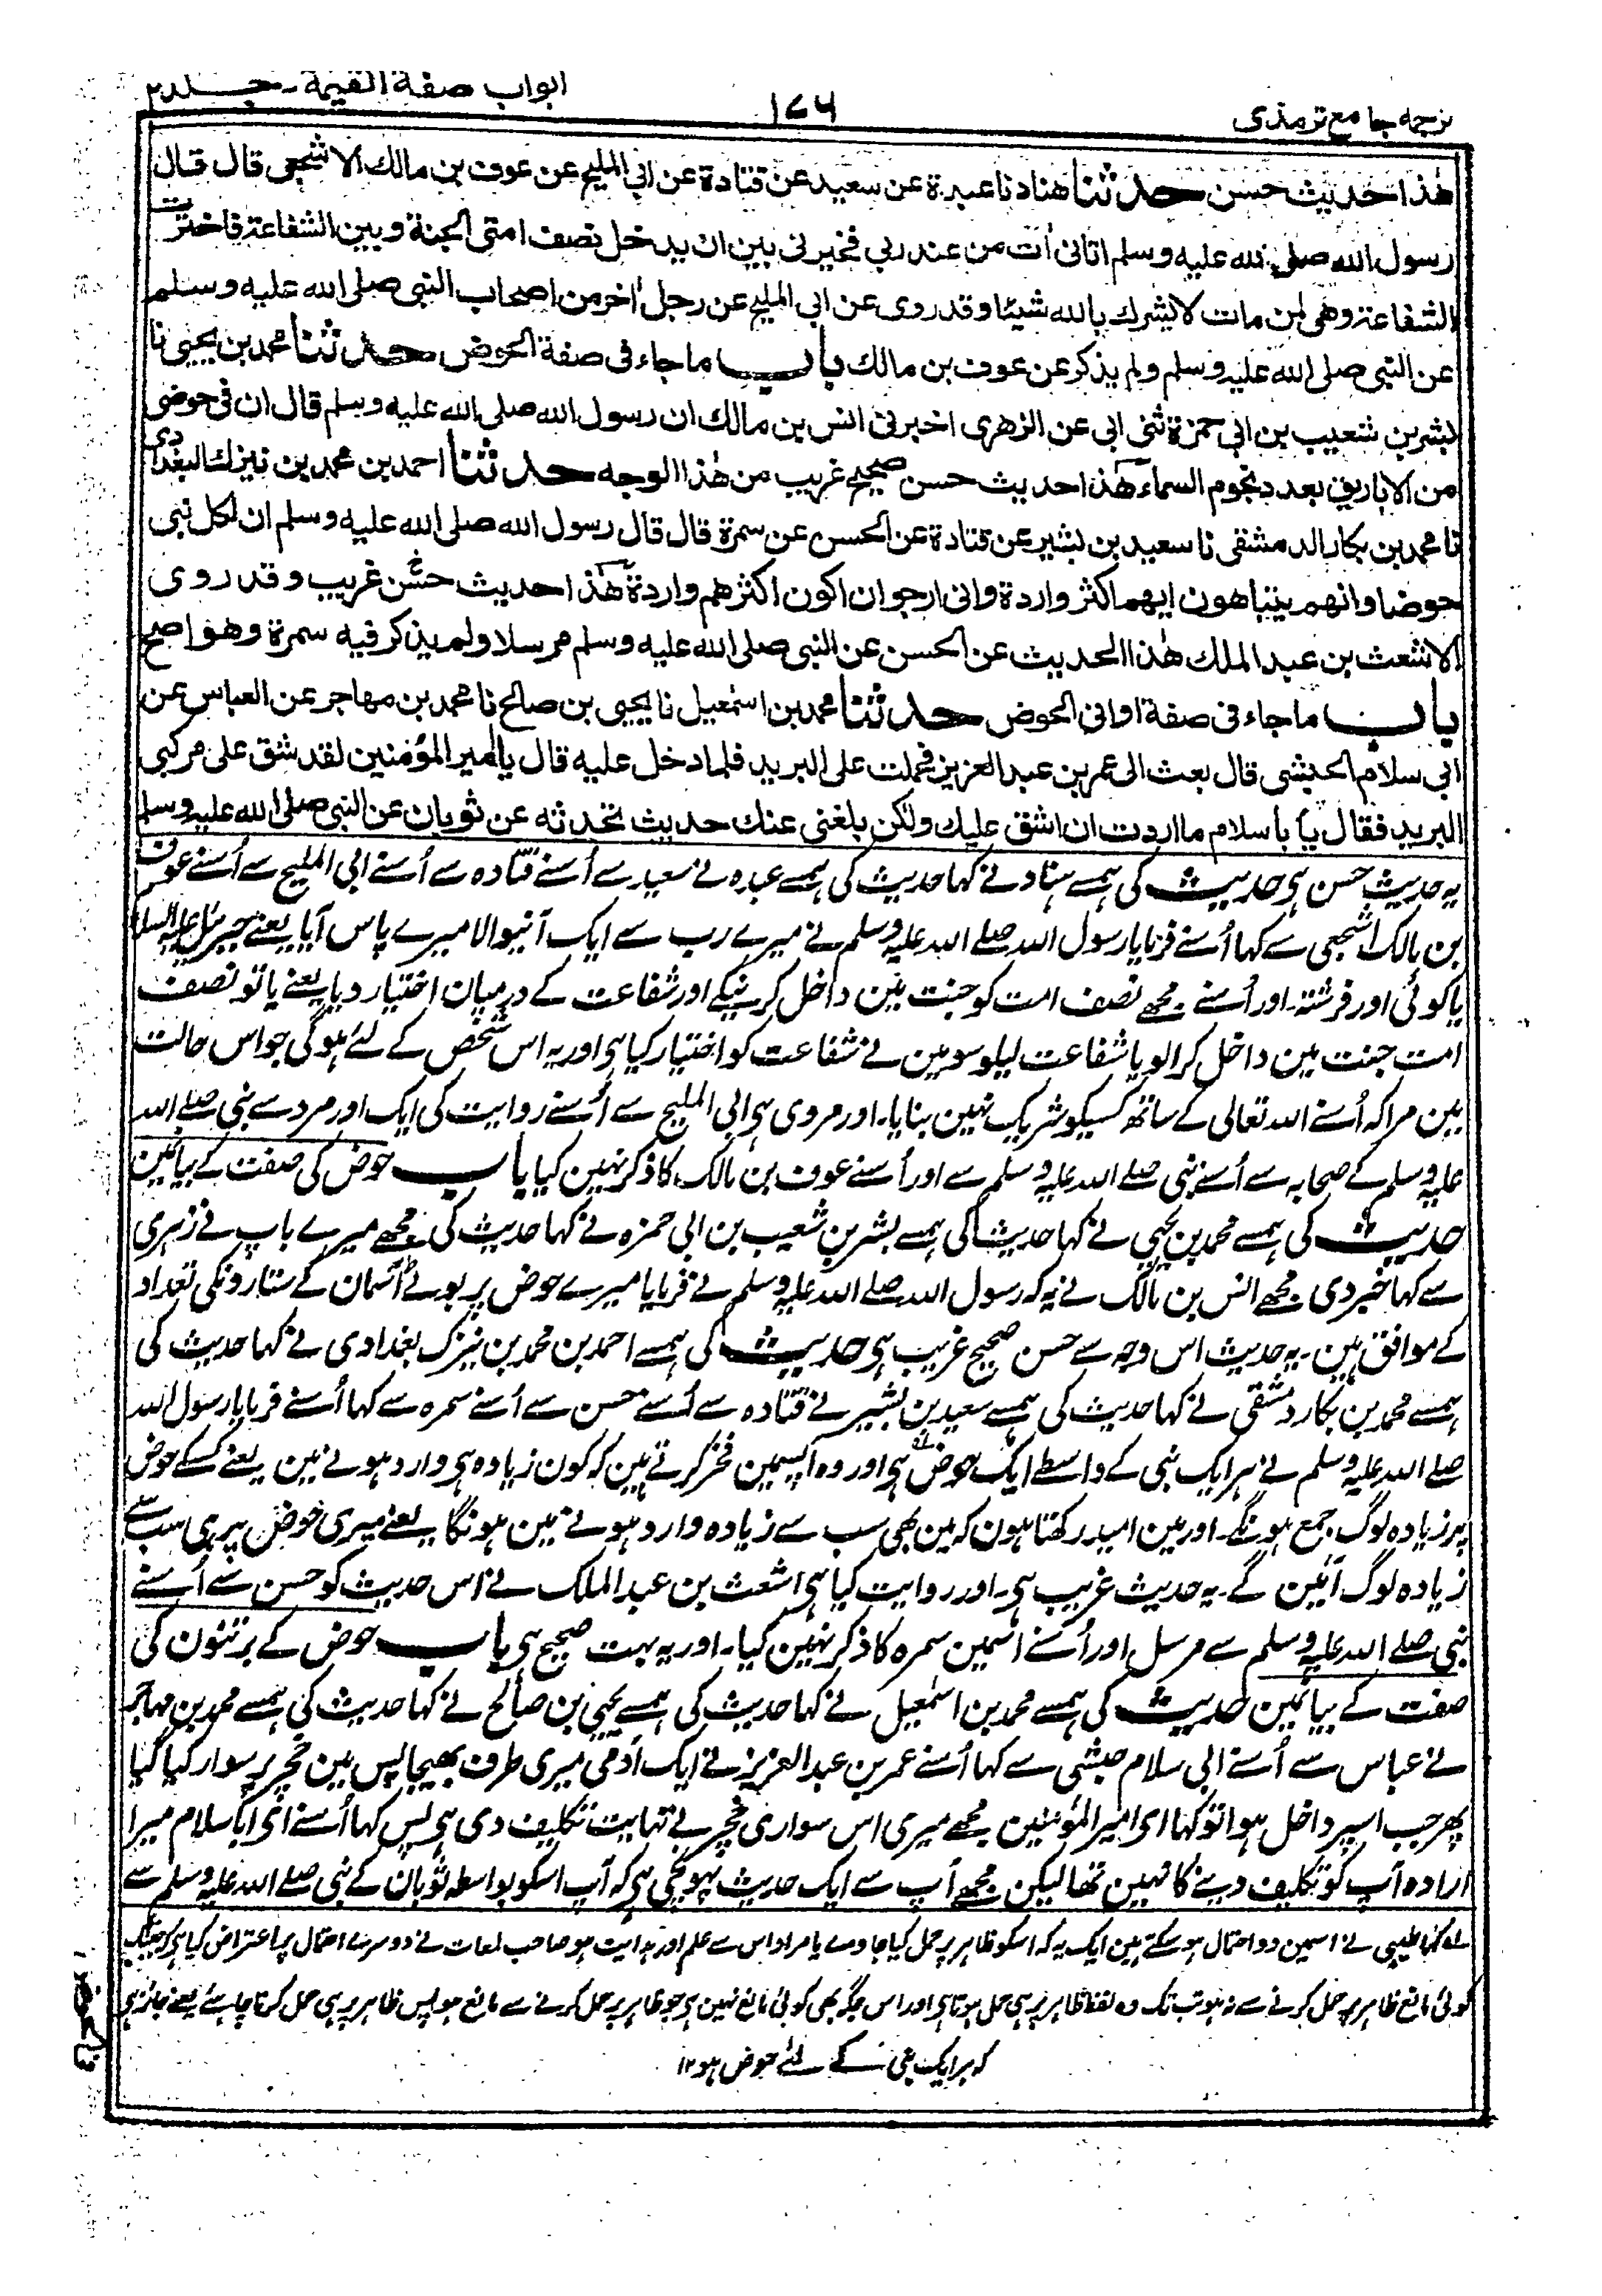 ترجمه جامع ترمذی
۱۷۶
ابواب صفة القيمة - جلد۲
هٰذا حديث حسن حدثنا هناد نا عبدة عن سعيد عن قتادة عن ابي المليح عن عوف بن مالك الاشجعي قال قال
رسول الله صلى الله عليه وسلم اتانى اٰت من عند ربي فخيرنى بين ان يدخل نصف امتى الجنة وبين الشفاعة فاخترت
الشفاعة وهى لمن مات لا يشرك بالله شيئا وقد روى عن ابى المليح عن رجل اٰخر من اصحاب النبى صلى الله عليه وسلم
عن النبى صلى الله عليه وسلم ولم يذكر عن عوف بن مالك باب ما جاء فى صفة الحوض حدثنا محمد بن يحيى نا
بشر بن شعيب بن ابى حمزة ثنى ابى عن الزهرى اخبرنى انس بن مالك ان رسول الله صلى الله عليه وسلم قال ان فى حوضى
من الاباريق بعدد نجوم السماء هٰذا حديث حسن صحيح غريب من هٰذا الوجه حدثنا احمد بن محمد بن نيزك البغدادى
نا محمد بن بكار الدمشقى نا سعيد بن بشير عن قتادة عن الحسن عن سمرة قال قال رسول الله صلى الله عليه وسلم ان لكل نبى
حوضا وانهم يتباهون ايهم اكثر واردة وانى ارجو ان اكون اكثرهم واردة هٰذا حديث حسن غريب وقد روى
الاشعث بن عبد الملك هٰذا الحديث عن الحسن عن النبى صلى الله عليه وسلم مرسلا ولم يذكر فيه سمرة وهو اصح
باب ما جاء فى صفة اوانى الحوض حدثنا محمد بن اسمٰعيل نا يحيى بن صالح نا محمد بن مهاجر عن العباس عن
ابى سلام الحبشى قال بعث الى عمر بن عبد العزيز فحملت على البريد فلما دخل عليه قال يا امير المؤمنين لقد شق على مركبى
البريد فقال يا با سلام ما اردت ان اشق عليك ولكن بلغنى عنك حديث تحدثه عن ثوبان عن النبى صلى الله عليه وسلم
یہ حدیث حسن ہی حدیث کی ہمسے ہناد نے کہا حدیث کی ہمسے عبدہ نے سعید سے اُسنے قتادہ سے اُسنے ابی الملیح سے اُسنے عوف
بن مالک اشجعی سے کہا اُسنے فرمایا رسول اللہ صلے اللہ علیہ وسلم نے میرے رب سے ایک آنیوالا میرے پاس آیا یعنے جبرئیل علیہ السلام
یا کوئی اور فرشتہ اور اُسنے مجھے نصف امت کو جنت مین داخل کرنیکے اور شفاعت کے درمیان اختیار دیا یعنے یا تو نصف
امت جنت مین داخل کرالو یا شفاعت لیلو سو مین نے شفاعت کو اختیار کیا ہی اور یہ اس شخص کے لئے ہوگی جو اس حالت
مین مرا کہ اُسنے اللہ تعالی کے ساتھ کسیکو شریک نہین بنایا۔ اور مروی ہی ابی الملیح سے اُسنے روایت کی ایک اور مرد سے نبی صلے اللہ
علیہ وسلم کے صحابہ سے اُسنے نبی صلے اللہ علیہ وسلم سے اور اُسنے عوف بن مالک کا ذکر نہین کیا باب حوض کی صفت کے بیانمین
حدیث کی ہمسے محمد بن یحیی نے کہا حدیث کی ہمسے بشر بن شعیب بن ابی حمزہ نے کہا حدیث کی مجھے میرے باپ نے زہری
سے کہا خبر دی مجھے انس بن مالک نے یہ کہ رسول اللہ صلے اللہ علیہ وسلم نے فرمایا میرے حوض پر بوٹے آسمان کے ستارونکی تعداد
کے موافق ہین۔ یہ حدیث اس وجہ سے حسن صحیح غریب ہی حدیث کی ہمسے احمد بن محمد بن نیزک بغدادی نے کہا حدیث کی
ہمسے محمد بن بکار دمشقی نے کہا حدیث کی ہمسے سعید بن بشیر نے قتادہ سے اُسنے حسن سے اُسنے سمرہ سے کہا اُسنے فرمایا رسول اللہ
صلے اللہ علیہ وسلم نے ہر ایک نبی کے واسطے ایک حوض ہی اور وہ آپسمین فخر کرتے ہین کہ کون زیادہ ہی وارد ہونے مین یعنے کسکے حوض
پر زیادہ لوگ جمع ہونگے۔ اور مین امید رکھتا ہون کہ مین بھی سب سے زیادہ وارد ہونے مین ہونگا یعنے میری حوض پر ہی سب سے
زیادہ لوگ آئین گے۔ یہ حدیث غریب ہی۔ اور روایت کیا ہی اشعث بن عبد الملک نے اس حدیث کو حسن سے اُسنے
نبی صلے اللہ علیہ وسلم سے مرسل اور اُسنے اسمین سمرہ کا ذکر نہین کیا۔ اور یہ بہت صحیح ہی باب حوض کے برتنون کی
صفت کے بیانمین حدیث کی ہمسے محمد بن اسمٰعیل نے کہا حدیث کی ہمسے یحیی بن صالح نے کہا حدیث کی ہمسے محمد بن مہاجر
نے عباس سے اُسنے ابی سلام حبشی سے کہا اُسنے عمر بن عبد العزیز نے ایک آدمی میری طرف بھیجا پس مین خچر پر سوار کیا گیا
پھر جب اسپر داخل ہوا تو کہا ای امیر المؤمنین مجھے میری اس سواری خچر نے نہایت تکلیف دی ہی پس کہا اُسنے ای ابا سلام میرا
ارادہ آپ کو تکلیف دینے کا نہین تھا لیکن مجھے آپ سے ایک حدیث پہونچی ہی کہ آپ اسکو بواسطہ ثوبان کے نبی صلے اللہ علیہ وسلم سے
لہ کہا طیبی نے اسمین دو احتمال ہوسکتے ہین ایک یہ کہ اسکو ظاہر پر حمل کیا جاوے یا مراد اس سے علم اور ہدایت ہو صاحب لمعات نے دوسرے احتمال پر اعتراض کیا ہی کہ جبتک
کوئی مانع ظاہر پر حمل کرنے سے نہ ہو تب تک وہ لفظ ظاہر پر ہی حمل ہوتا ہی اور اس جگہ بھی کوئی مانع نہین ہی جو ظاہر پر حمل کرنے سے مانع ہو پس ظاہر پر ہی حمل کرنا چاہئے یعنے جائز ہی
کہ ہر ایک نبی کے لئے حوض ہو ۱۲